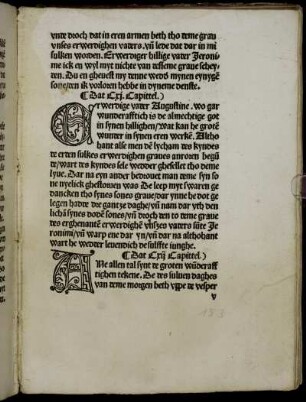 vnde droch dat in eren armen beth tho deme graue
vnses erwerdighen vaters. vñ lede dat dar in mi
sulken worden. Erwerdiger hillige vater Jeroni-
me ick en wyl myt nichte van desseme graue schey-
den. Du en gheuest my denne wedder mynen eynygē
sone/den ik vorloren hebbe in dyneme denste.
(Dat Cxj. Capittel.)
Erwerdige vater Augustine. wo gar
wunderafftich is de almechtige got
in synen hillighen/wat kan he grote
wunder in synen eren werkē. Altho
hant alse men dē lycham des kyndes
to erden sulkes erwerdighen graues anroren begū
de/wart des kyndes sele wedder ghesellet tho deme
lyue. Dar na eyn ander bedrouet man deme syn so
ne nyelick ghestoruen was De leep myt swaren ge
dancken tho synes sones graue/dar ynne he dot ge
legen hadde dre gantze daghe/vñ nam dar vth den
licham synes dodē sones/vñ droch den to deme graue
des erghenantē erwerdighē vnses vaters sūte Je
ronimi/vñ warp ene dar yn/vñ dar na althohant
wart he wedder leuendich de suluste iunghe.
(Dat Cxij Capittel.)
Ane allen tal synt de groten wūderaff
tighen tekene. De des suluen daghes
van deme morgen beth vppe de vesper
v
153